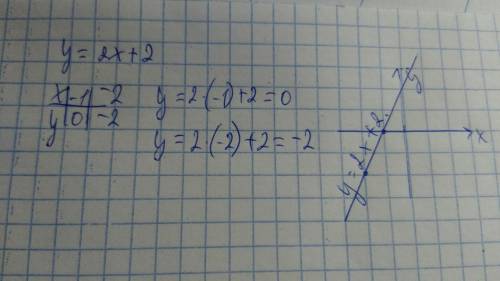 y = 2x+2
x -1 -2
y 0 -2
y = 2·(-1)+2 = 0
y = 2·(-2)+2 = -2
y
x
y = 2x+2